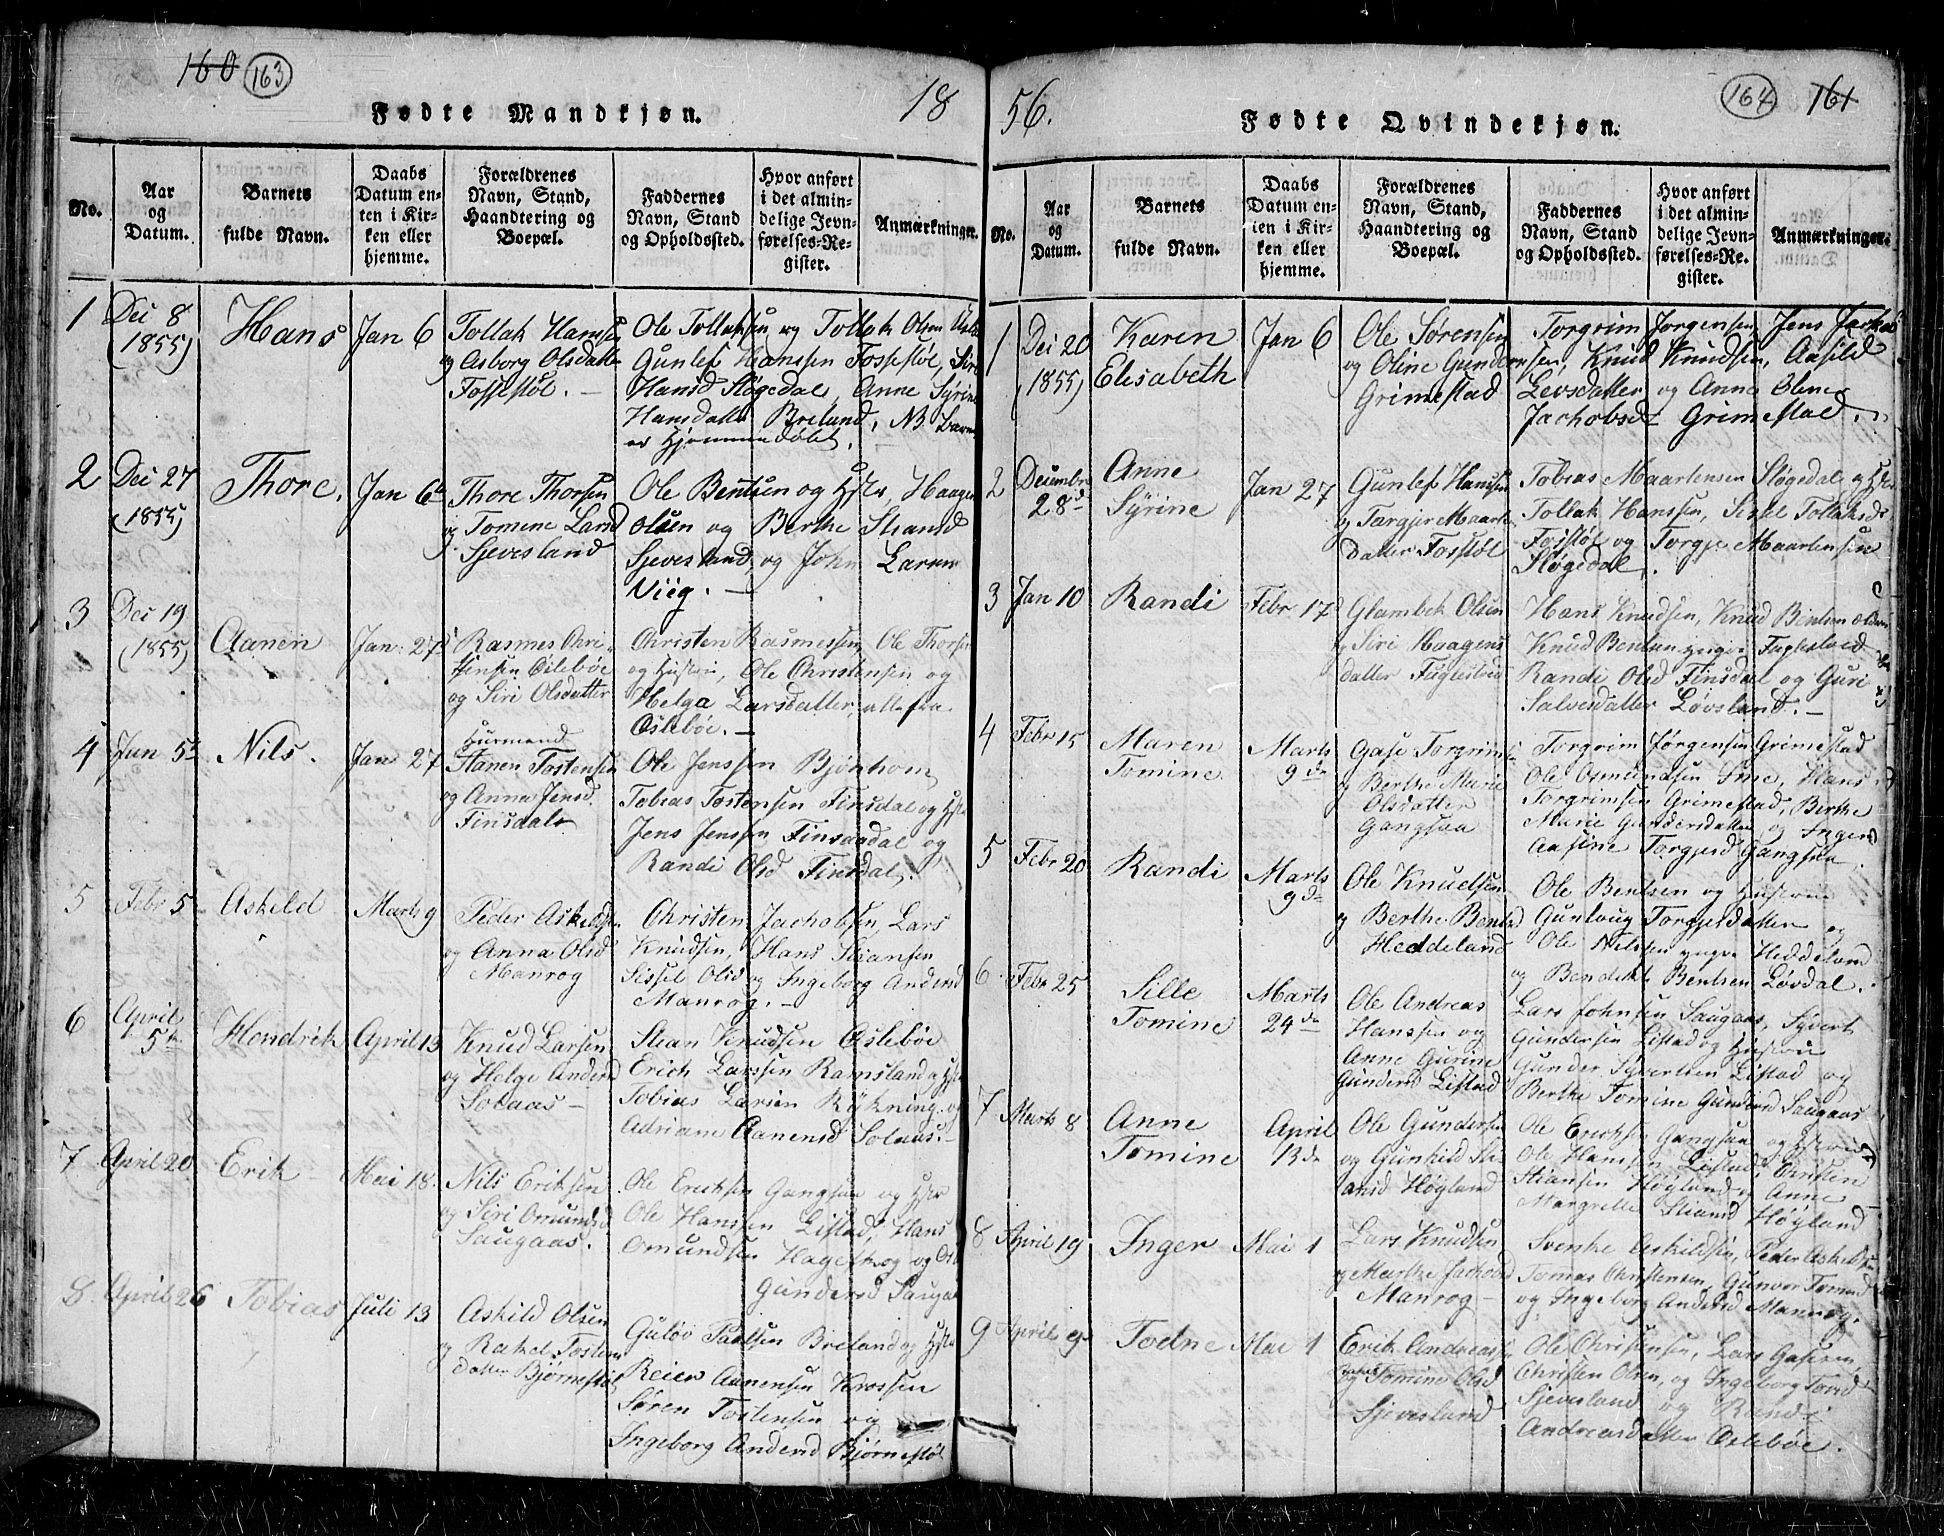 160 163
18
Fødte Mandkjøn.
No.
Aar
og
Datum.
Barnets
fulde Navn.
Daabs
Datum en-
ten i Kir-
ken eller
hjemme.
Forældrenes
Navn, Stand,
Haandtering og
Boepæl.
Faddernes
Navn, Stand
og Opholdssted.
Hvor anført
i det almin-
delige Jevn-
førelses-Re-
gister.
Anmærkninger.
1
Dei 8
(1855)
Hans
Jan 6
Tollak Hanssen
og Asborg Olsdatter
Fossestøl. —
Ole Tollaksen og Tollak Olsen
Gunlef Hanssen Fossestøl, Siri
Hansd Sløgedal, Anne Syrine
Hansdatter Breland, NB Barnet
er Hjemmedøbt.
2
Dei 27
(1855)
Thore.
Jan 6
Thore Thorsen
og Tomene Larsd
Sjevesland
Ole Bentsen og Hstr, Haagen
Olsen og Berthe Stiansd
Sjevesland og John Larsen
Viig. —
3
Dei 19
(1855)
Aanen
Jan. 27
Rasmes Chri-
stensen Oslebøe
og Siri Olsdatter
Christen Rasmessen, Ole Thorsen
og Hustru, Ole Christensen og
Helga Larsdatter, alle fra
Oslebøe. —
4
Jan 5
Nils.
Jan 27
Huusmand
Aanen Tostensen
og Anna Jensd.
Finsdal
Ole Jenssen Bjönhom,
Tobias Tostensen Finsdal og Hstr
Jens Jenssen Finsdal og
Randi Olsd Finsdal.
5
Febr 5
Askild
Marts 9
Peder Askildsen
og Anna Olsd
Manrog
Christen Jachobsen, Lars
Knudsen, Hans Stiansen
Sissel Olsd og Ingeborg Andersd
Manrog. —
6
April
5
Hendrik
April 13
Knud Larsen
og Helge Andersd
Solaas —
Stian Knudsen Oslebøe
Erich Larssen Ramsland og Hstr
Tobias Larsen Rykning og
Adriane Aanensd Solaas. —
7
April 20
Erik
Mai 18.
Nils Eriksen
og Siri Omundsd
Saugaas.
Ole Ericksen Gangsaa og Hstr
Ole Hanssen Listad, Hans
Omundsen Hageskog og
Gundersd Saugaas
8.
April 26
Tobias
Juli 13
Askild Olsen
og Rakel Tostens
Datter Bjørnestøl
Guløv Paalsen Breland og Hstr
Reier Aanensen Krossen
Søren Tostensen og
Ingeborg Andersd Bjørnestøl
56.
164 161
Fødte Qvindekjøn.
No.
Aar
og
Datum.
Barnets
fulde Navn.
Daabs
Datum en-
ten i Kir-
ken eller
hjemme.
Forældrenes
Navn, Stand,
Haandtering og
Boepæl.
Faddernes
Navn, Stand
og Opholdssted.
Hvor anført
i det almin-
delige Jevn-
førelses-Re-
gister.
Anmærkninger.
1
Dei 20
(1855)
Karen
Elisabeth
Jan 6
Ole Sørensen
og Oline Gunders
Grimestad
Torgrim Jørgensen, Jens
Knud Knudsen, Aasild
Levsdatter og Anne
Jachobsd Grimestad.
2
Deiembr
28
Anne
Syrine
Jan 27
Gunlef Hanssen
og Targjer Maartens
datter Fosstøl
Tobias Maartensen Sløgedal og Hstr
Tollak Hanssen, Sissel Tollaksd
Fosstøl og Torgje Maartensen
Sløgedal.
3
Jan 10
Randi
Febr 17
Glambek Olsen
og Siri Haagens
datter Fuglestved
Hans Knudsen, Knud Bentsen
Knud Bentsen yngre Fuglestved
Randi Olsd Finsdal og Guri
Salvesdatter Løvsland. —
4
Febr 15
Maren
Tomine
Marts
9 de
Gase Torgrims
og Berthe Marie
Olsdatter
Gangsaa
Torgrim Jørgensen Grimestad
Ole Osmundsen Eme, Hans
Torgrimsen Grimestad, Berthe
Marie Gundersdatter og Inger
Aasine Torgjersd Gangsaa.
5
Febr 20
Randi
Marts
9 de
Ole Knudsen
og Berthe Bentsd
Heddeland
Ole Bentsen og Hustrue
Gunlaug Torgjersdatter og
Ole Nilssen yngre Heddeland
og Bendikt Bentsen Løvdal.
6
Febr 25
Sille
Tomine
Marts
24 de
Ole Andreas
Hanssen og
Anne Gurine
Gundersd Listad
Lars Johnsen Saugaas, Syvert
Gundersen Listad og Hustrue
Gunder Syvertsen Listad og
Berthe Tomine Gundersd Saugaas
7
Marts 8
Anne
Tomine
April
13 de
Ole Gundersen
og Gunhild Sti-
ansd Høyland
Ole Ericksen Gangsaa og Hstr
Ole Hanssen Listad, Christen
Stiansen Høyland og Anne
Margrethe Stiansd Høyland
8
April 19
Inger
Mai 1
Lars Knudsen
og Marthe Jachobsd
Manrog —
Svenke Askildsen, Peder Askildsen
Tomas Christensen, Gunvor Tomasd
og Ingeborg Andersd Manrog.
9
April
Todne
Mai 1
Erik Andreassen
og Tomine Olsd
Sjevesland
Ole Christensen, Lars Gasesen,
Christen Olsen, og Ingeborg
Sjevesland og Randi
Andreasdatter Oslebøe.